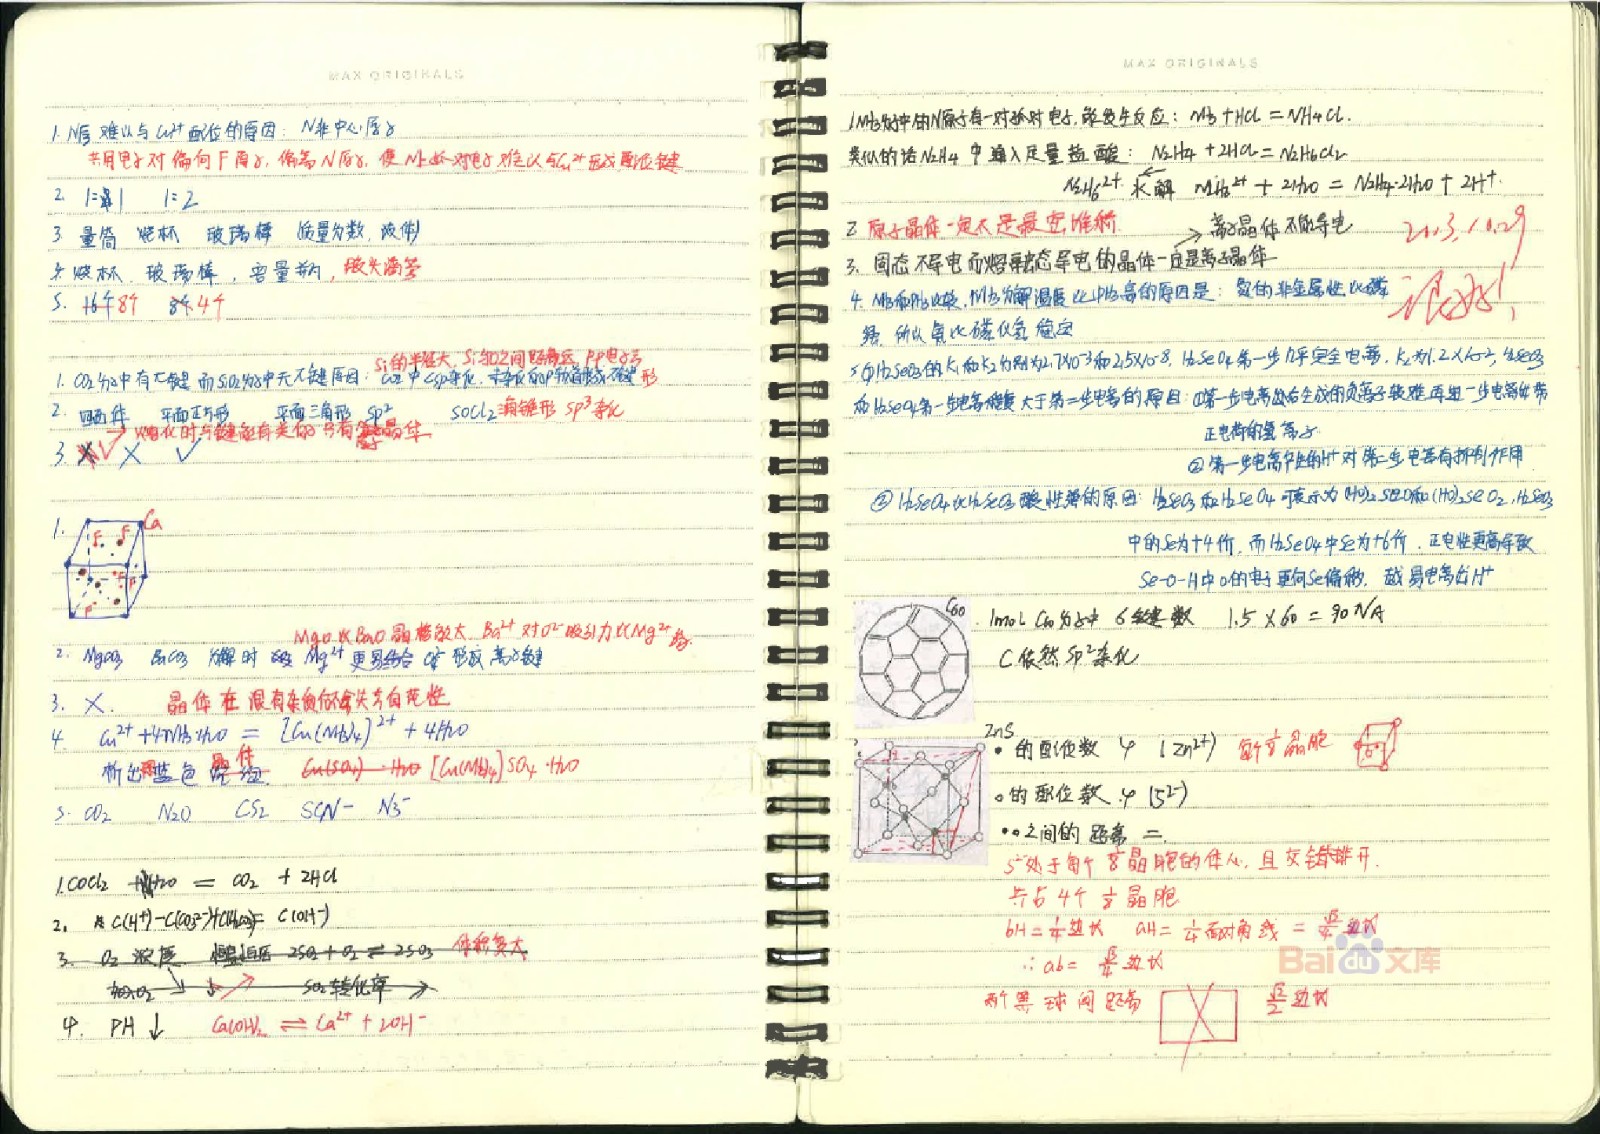 MAX ORIGINALS
1. NF3 难以与Cu2+配位的原因: N非中心原子
共用电子对偏向F原子, 偏离N原子, 使N上孤对电子难以与Cu2+形成配位键
2. 1=1 1=2
3. 量筒 烧杯 玻璃棒 (质量分数, 液体)
烧杯, 玻璃棒, 容量瓶, 胶头滴管
5. 16个 8个 8个 4个
Si的半径大, Si与O之间距离远, p-p电子云
1. CO2分子中有大π键而SiO2分子中无π键原因: CO2中C sp杂化, 形
2. 平面正方形 平面三角形 sp2 SOCl2 三角锥形 sp3杂化
熔化时与键能有关似乎只有原子晶体
3. X √ X √
1. Ca F F F F
MgO比BaO晶格能大, Ba2+对O2-吸引力比Mg2+弱
2. MgCO3 BaCO3 分解时 Mg2+更易结合O2-形成离子键
3. X. 晶体在没有杂质仍会失去自范性
4. Cu2+ + 4NH3·H2O = [Cu(NH3)4]2+ + 4H2O
析出深蓝色晶体 Cu(SO4)·H2O [Cu(NH3)4]SO4·H2O
5. CO2 N2O CS2 SCN- N3-
1. COCl2 + H2O = CO2 + 2HCl
2. C(H+)-C(CO32-)+C(H2CO3)= C(OH-)
3. O2浓度 2SO2+O2⇌2SO3 体积变大
加入O2 SO2转化率
4. PH↓ Ca(OH)2 ⇌ Ca2+ + 2OH-
MAX ORIGINALS
1. NH3分子中的N原子有一对孤对电子, 能发生反应: NH3+HCl=NH4Cl.
类似的话N2H4中通入足量盐酸: N2H4+2HCl=N2H6Cl2
N2H62+ 水解 N2H62+ + 2H2O = N2H4·2H2O + 2H+
2. 原子晶体一定不是最密堆积. 离子晶体不能导电
2013.10.29
3. 固态不导电而熔融态导电的晶体一定是离子晶体
很好!
4. NH3和PH3比较, NH3分解温度比PH3高的原因是: 氮的非金属性比磷
强, 所以氨比磷化氢稳定
5. ①H2SeO3的K1和K2分别为2.7×10-3和2.5×10-8, H2SeO4第一步几乎完全电离, K2为1.2×10-2, H2SeO3
和H2SeO4第一步电离程度大于第二步电离的原因: ①第一步电离后生成的负离子较难再进一步电离出带
正电荷的氢离子
②第一步电离产生的H+对第二步电离有抑制作用
② H2SeO4比H2SeO3酸性强的原因: H2SeO3和H2SeO4可表示为(HO)2SeO和(HO)2SeO2, H2SeO3
中的Se为+4价, 而H2SeO4中Se为+6价, 正电性更高导致
Se-O-H中O的电子更向Se偏移, 越易电离出H+
C60 1mol C60分子中 σ键数 1.5×60=90NA
C依然sp2杂化
ZnS
•的配位数 4 (Zn2+) 每个1/8晶胞
o的配位数 4 (S2-)
•o之间的距离 =
S2-处于每个1/8晶胞的体心, 且交错排开.
共占4个1/8晶胞
bH=1/4边长 aH=1/4面对角线=√2/4边长
∴ab=√3/4边长
两个黑球间距离 √2/2边长
Baidu文库